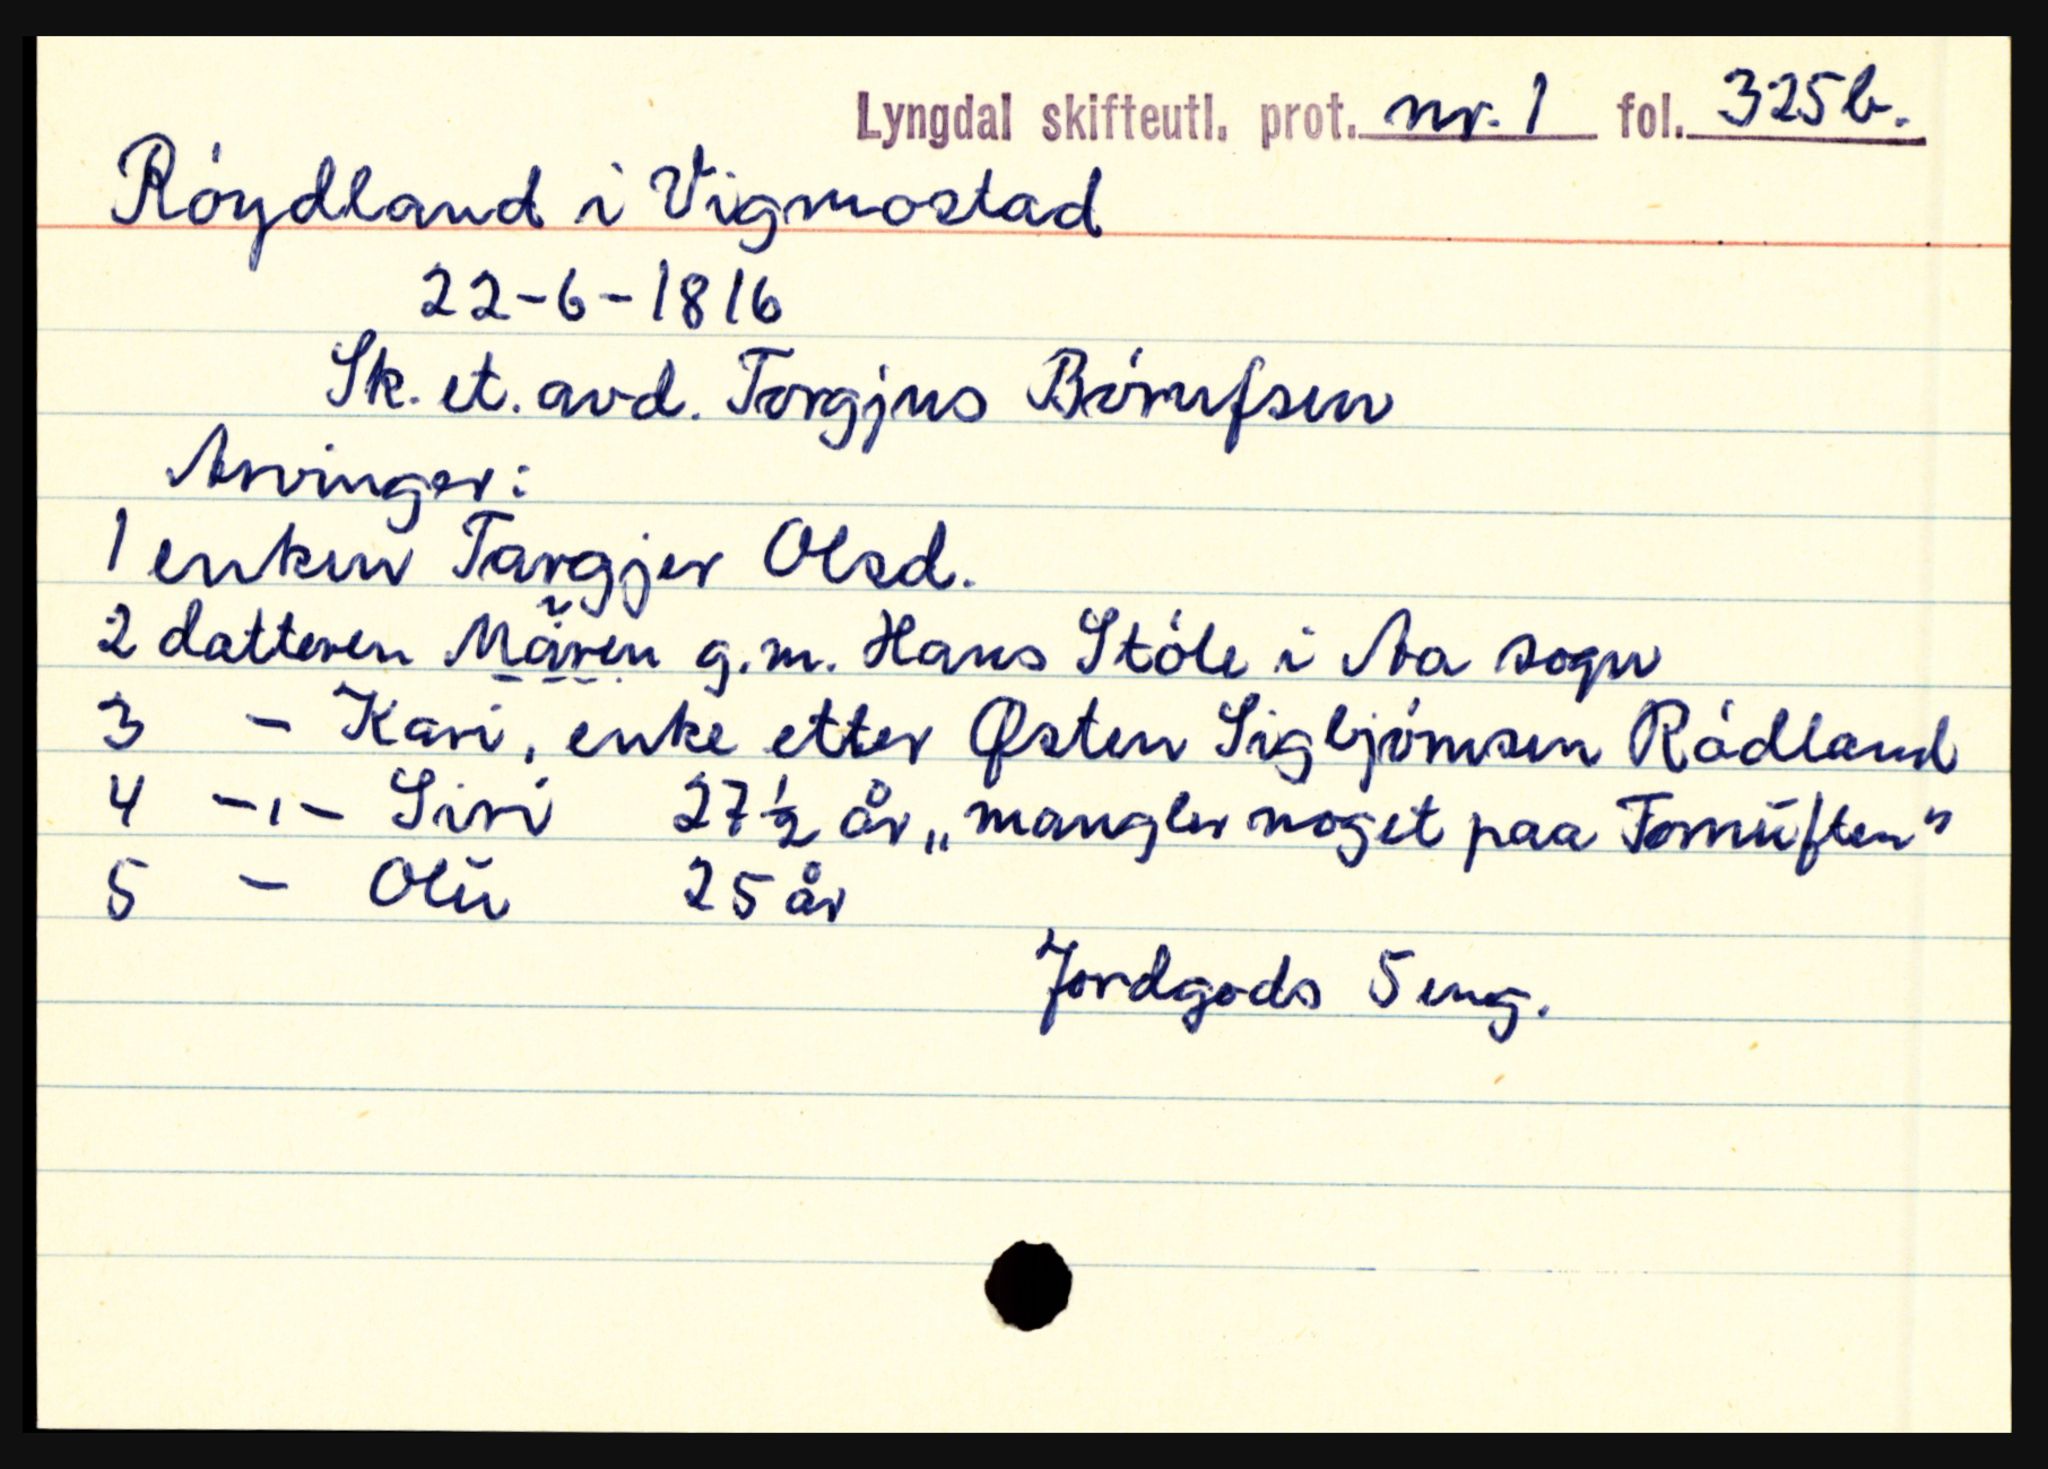 Lyngdal skifteutl. prot. nr. 1 fol. 325b.
Röydland i Vigmostad
22-6-1816
Sk. et. avd. Torgjus Börufsen
Arvinger:
1 enken Targjer Olsd.
2 datteren Mären g.m. Hans Stöle i Aa sogn
3 - Kari, enke etter Østen Sigbjörnsen Rödland
4 -"- Siri 27 ½ år „mangler noget paa Fornüften"
5 - Olü 25 år
Jordgods 5 eng.